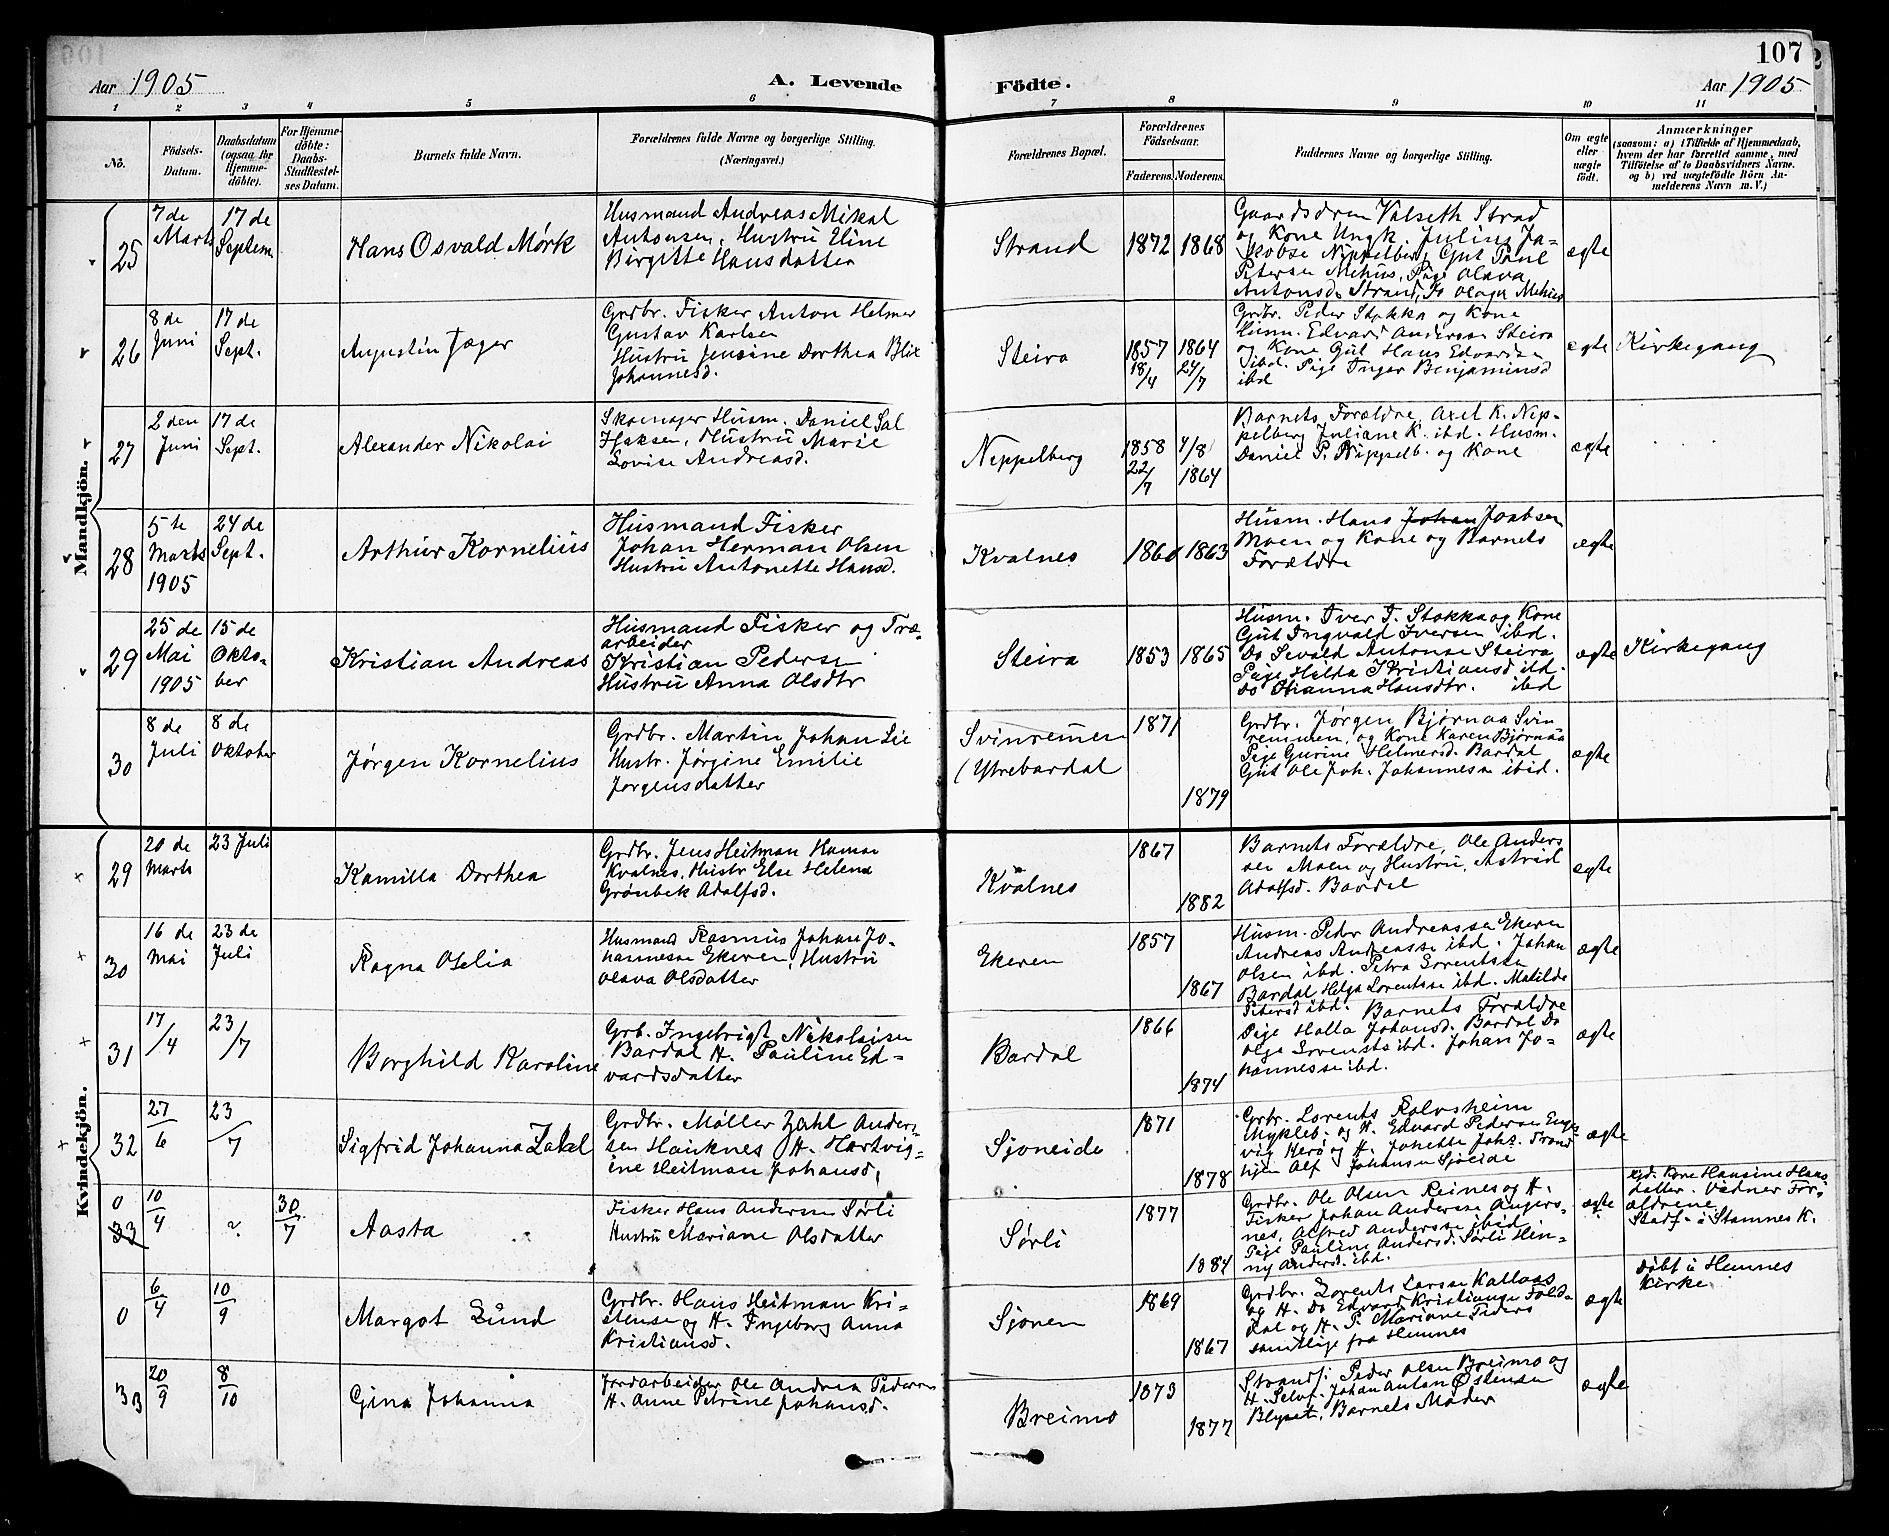 107
Aar 1905
A. Levende Födte.
Aar 1905
1 2 3 4 5 6 7 8 9 10 11
No.
Födsels-
Datum.
Daabsdatum
(ogsaa for
Hjemme-
döbte).
For Hjemme-
döbte:
Daabs-
Stadfæstel-
ses Datum.
Barnets fulde Navn.
Forældrenes fulde Navne og borgerlige Stilling.
(Næringsvei.)
Forældrenes Bopæl.
Forældrenes
Födselsaar.
Faderens. Moderens.
Faddernes Navne og borgerlige Stilling.
Om ægte
eller
uægte
födt.
Anmærkninger
(saasom: a) i Tilfælde af Hjemmedaab,
hvem der har forrettet samme, med
Tilföielse af to Daabsvidners Navne.
og b) ved uægtefödte Börn An-
melderens Navn m. V.)
Mandkjön.
25
7 de
Marts
17 de
Septem
Hans Osvald Mørk
Husmand Andreas Mikal
Antonsen, Hustru Eline
Birgitte Hansdatter
Strand
1872 1868
Gaardsdren Valseth Strad
og Kone Ungk. Julius Ja-
kobse Nippelberg Gut Paul
Petersen Mehus, Pige Olava
Antonsd. Strand, Do Olaga Mehus
ægte
26
8 de
Juni
17 de
Sept.
Augustin Jæger
Grdbr. Fisker Anton Helmer
Gustav Karlsen
Hustru Jensine Dorthea Blix
Johannesd.
Steira
1857 1864
18/4 24/7
Grdbr. Peder Stokka og Kone
Husm. Edvard Andersen Steira
og Kone Gut Hans Edvardsen
ibid. Pige Inger Benjaminsd
ibd
ægte
Kirkegang
27
2 den
Juni
17 de
Sept.
Alexander Nikolai
Skomager Husm. Daniel Sal
Isaksen, Hustru Marie
Lovise Andreasd.
Neppelberg
1858 4/8
22/7 1864
Barnets Forældre, Axel K. Nip-
pelberg Juliane K. ibd. Husm.
Daniel P. Nippelb. og Kone
ægte
28
5 te
Marts
1905
24 de
Sept.
Arthur Kornelius
Husmand Fisker
Johan Herman Olsen
Hustru Antonette Hansd.
Kvalnes
1860 1863
Husm. Hans Johan Joabsen
Moen og Kone og Barnets
Forældre
ægte
29
25 de
Mai
1905
15 de
Okto-
ber
Kristian Andreas
Husmand Fisker og Træ-
arbeider
Kristian Pedersen
Hustru Anna Olsdtr
Steira
1853 1865
Husm. Iver I. Stokka og Kone
Gut Ingvald Iversen ibd.
Do Sevald Antonse Steira
Pige Hilda Kristiansd ibd.
Do Stianna Hansdtr. ibd
ægte
Kirkegang
30
8 de
Juli
8 de
Oktober
Jørgen Kornelius
Grdbr. Martin Johan Lie
Hustr. Jørgine Emilie
Jørgensdatter
Svinremmen
(Ytrebardal
1871
1879
Grdbr. Jørgen Bjørnaa Svin
remmen, og Kone Karen Bjørnaa
Pige Gurine Helmersd. Bardal
Gut Ole Joh. Johannesn ibid.
ægte
Kvindekjön.
29
20 de
Marts
23 Juli
Kamilla Dorthea
Grdbr. Jens Heitman Hanse
Kvalnes, Hustr Else Helena
Grønbek Adolfsd.
Kvalnes
1867
1882
Barnets Forældre, Ole Anders
sen Moen og Hustru, Astrid
Adolfsd. Bardal
ægte
30
16 de
Mai
23 de
Juli
Ragna Oselia
Husmand Rasmus Johan Jo-
hannesse Ekeren, Hustru
Olava Olsdatter
Ekeren
1857
1867
Husm. Peder Andreassen Ekeren
Andreas Andreasse ibd. Johan
Olsen ibd. Petra Lorentsen
Bardal Helga Lorentsse ibd. Matilde
Petersd ibd.
ægte
31
17/4
23/7
Borghild Karoline
Grb. Ingebrigt Nikolaisen
Bardal H. Pauline Ed-
vardsdatter
Bardal
1866
1874
Barnets Forældre
Pige Halla Johansd. Bardal Do
Olga Lorentse ibd. Johan Jo-
hannesse ibd.
ægte
32
27/6
23/7
Sigfrid Johanna Zakel
Grdbr. Møller Zahl Anders-
sen Hauknes H. Hartvig-
ine Heitman Johansd.
Sjoneide
1871
1878
Grbr. Lorents Rolvsheim
Mykleb. og H. Edvard Pedersen
vig Herø og H. Johette Johs.
Alf Johansen Sjøeide
ægte
0
33
10/4
?
30/7
Aasta
Fisker Hans Andersen Sørli
Hustru Mariane Olsdatter
Sørli
1877
1884
Grdbr. Ole Olsen Reines og H.
Fisker Johan Andersse Angers-
nes, Alfred Andersse ibid
Pige Pauline Andersd. Sørli Hen-
ny Andersd. ibd.
ægte
Gjd. Kone Hansine Hans
datter. Vidner For-
ældrene
Stadf. i Stamnes K.
0
6/4
10/9
Margot Lund
Grdbr. Hans Heitman Kri-
stense og H. Ingeborg Anna
Kristiansd.
Sjonen
1869
1867
Grdbr. Lorents Larsse Kallaas
og H. Do Edvard Kristianse Fold-
dal og H. P. Mariane Peders
samtlige fra Hemnes
ægte
döbt i Hemnes
Kirke
33
20/9
8/10
Gina Johanna
Jordarbeider Ole Andrea Pedersen
H. Anne Petrine Johansd.
Breimo
1873
1877
Strands. Peder Olsen Breimo og
H. Selvf. Johan Anton Østensen
Blyset, Barnets Moder
ægte